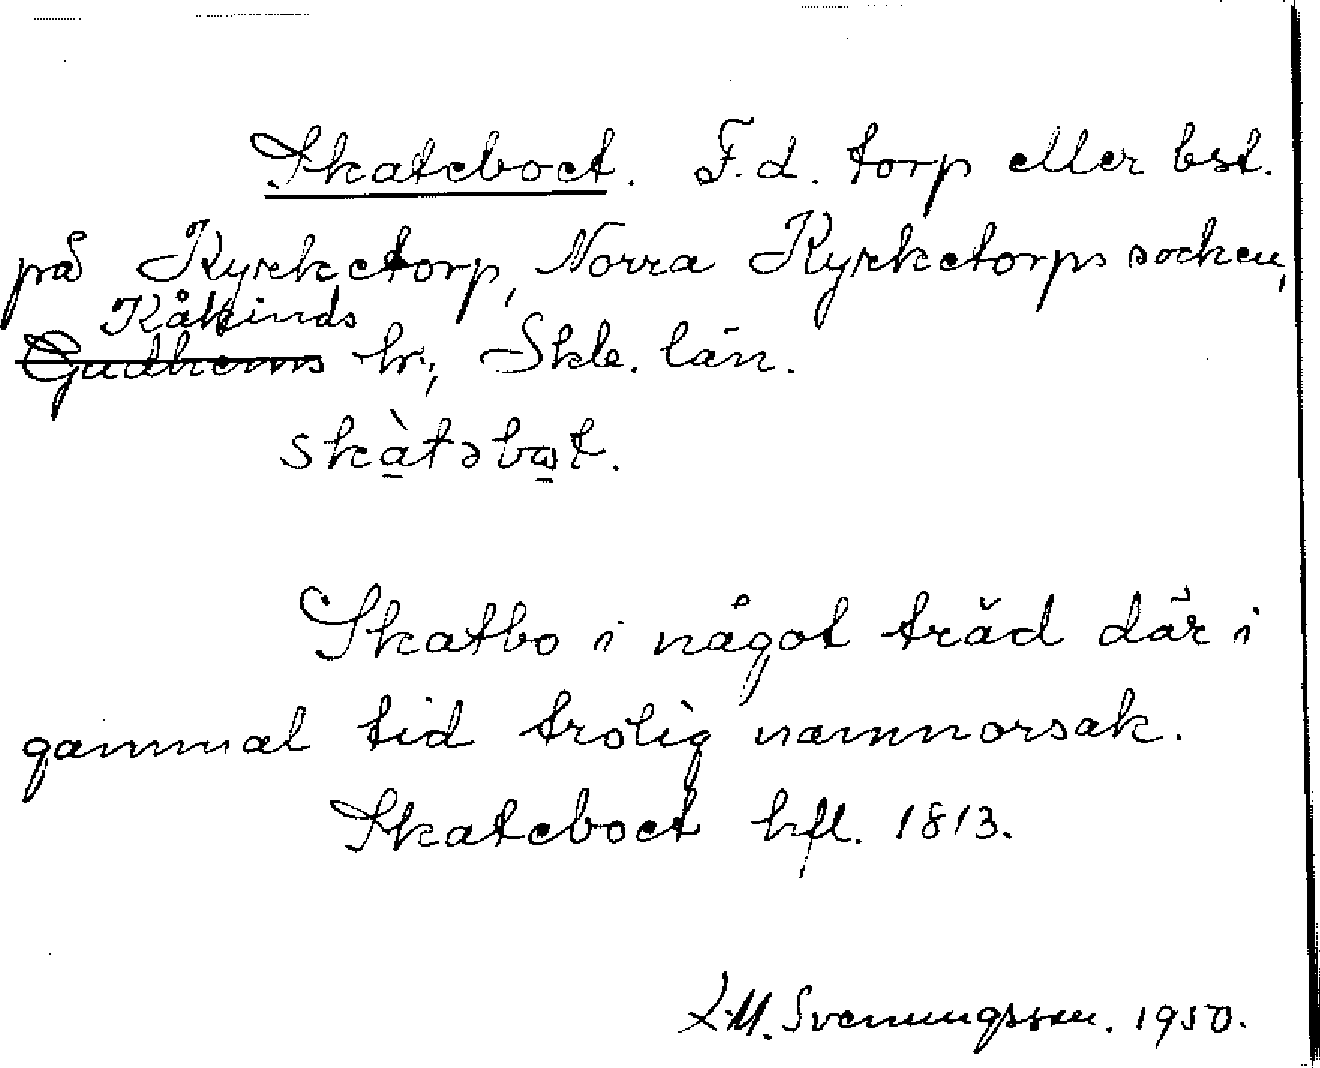 Skateboet. F.d. torp eller bst.
på Kyrketorp, Norra Kyrketorps socken,
Kåkinds
Gudhems hr, Skbg. län.
skàtəbωt.
Skatbo i något träd där i
gammal tid trolig namnorsak.
Skateboet hfl. 1813.
Svenungsson. 1950.